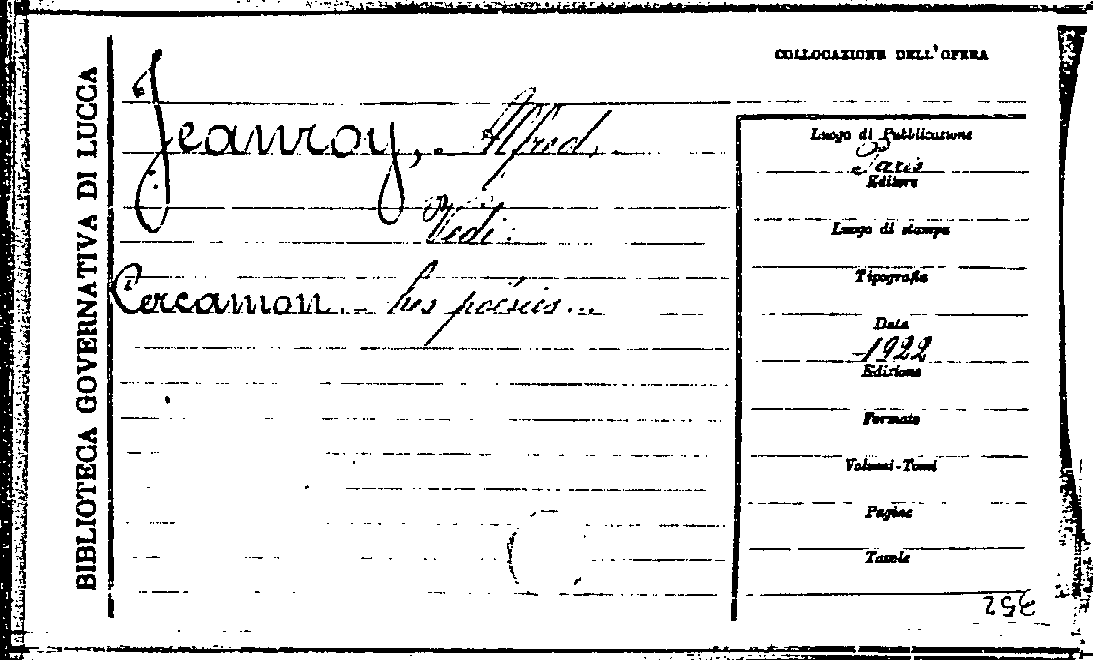 BIBLIOTECA GOVERNATIVA DI LUCCA
Jeanroy, Alfred.
Vedi:
Cercamon. Les poésies...
COLLOCAZIONE DELL'OPERA
Luogo di Pubblicazione
Paris
Editore
Luogo di stampa
Tipografia
Data
1922
Edizione
Formato
Volumi-Tomi
Pagine
Tavole
352